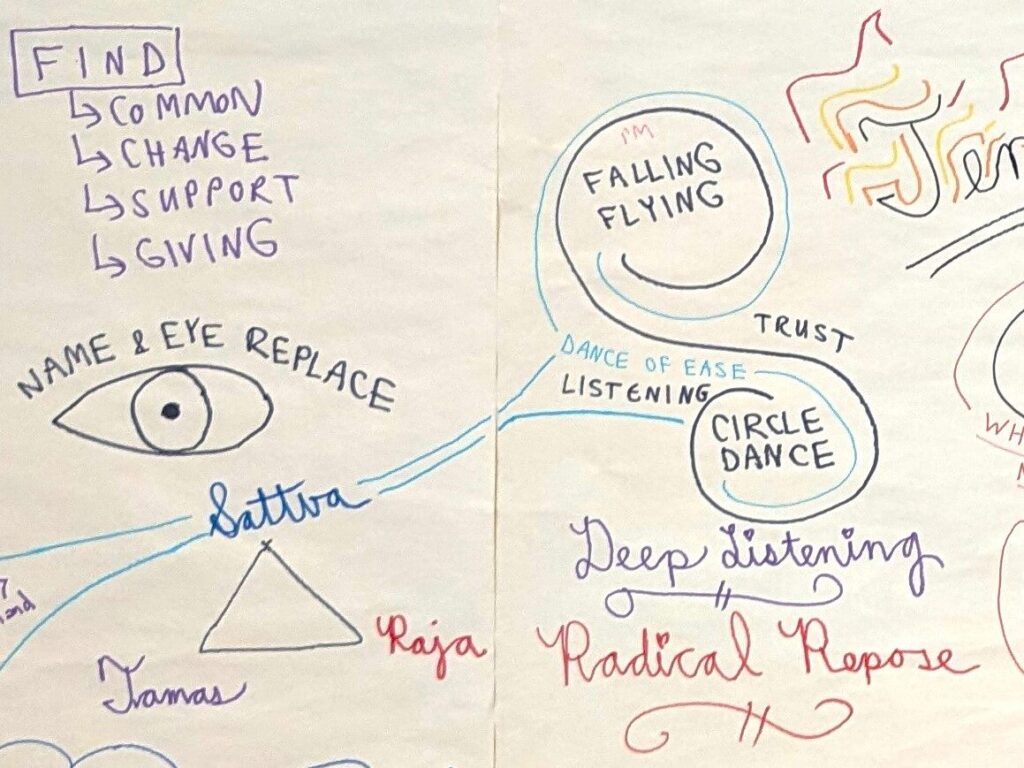 FIND
↳ COMMON
↳ CHANGE
↳ SUPPORT
↳ GIVING
NAME & EYE REPLACE
Sattva
Raja
Tamas
I'M
FALLING
FLYING
TRUST
DANCE OF EASE
LISTENING
CIRCLE
DANCE
Deep Listening
Radical Repose